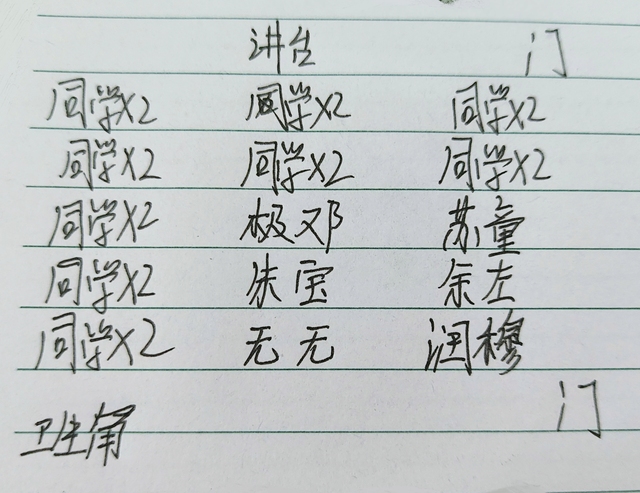 讲台 门
同学X2 同学X2 同学X2
同学X2 同学X2 同学X2
同学X2 极邓 苏童
同学X2 朱宝 余左
同学X2 无无 润穆
门
卫生角